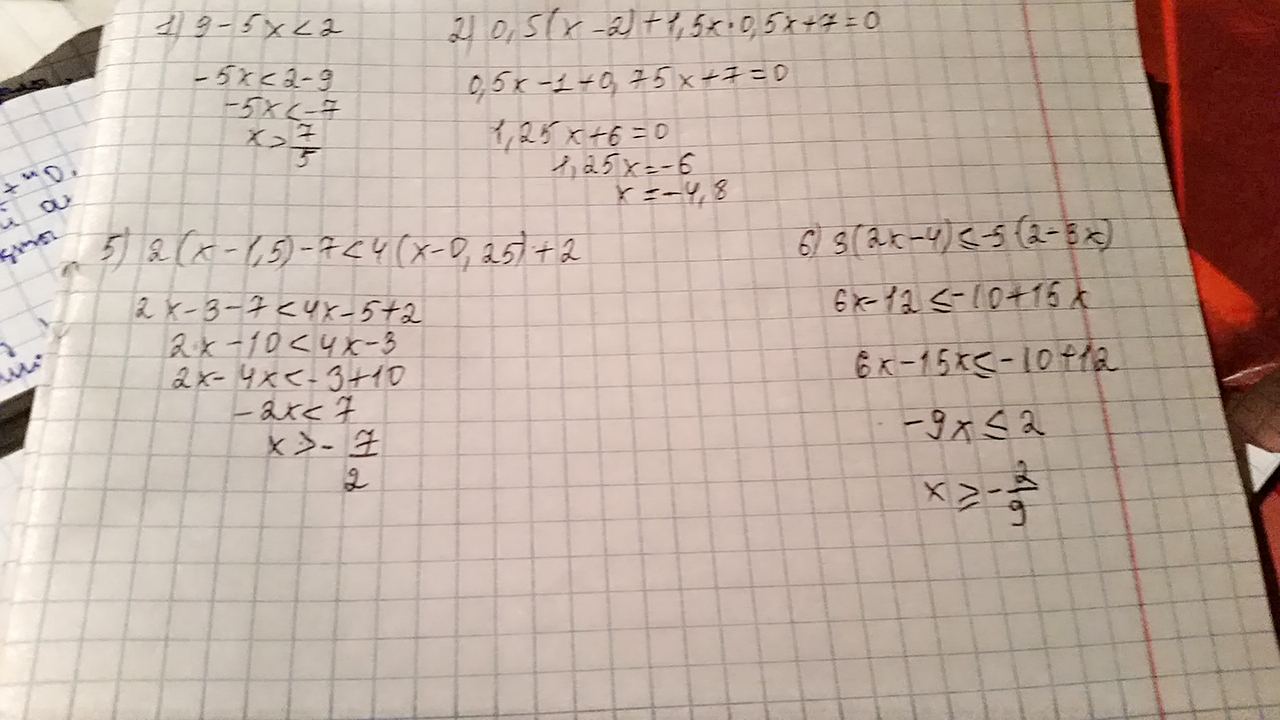 1) 9-5x<2
-5x<2-9
-5x<-7
x>7/5
2) 0,5(x-2)+1,5x·0,5x+7=0
0,5x-1+0,75x+7=0
1,25x+6=0
1,25x=-6
x=-4,8
5) 2(x-1,5)-7<4(x-0,25)+2
2x-3-7<4x-5+2
2x-10<4x-3
2x-4x<-3+10
-2x<7
x>-7/2
6) 3(2x-4)≤-5(2-3x)
6x-12≤-10+15x
6x-15x≤-10+12
-9x≤2
x≥-2/9